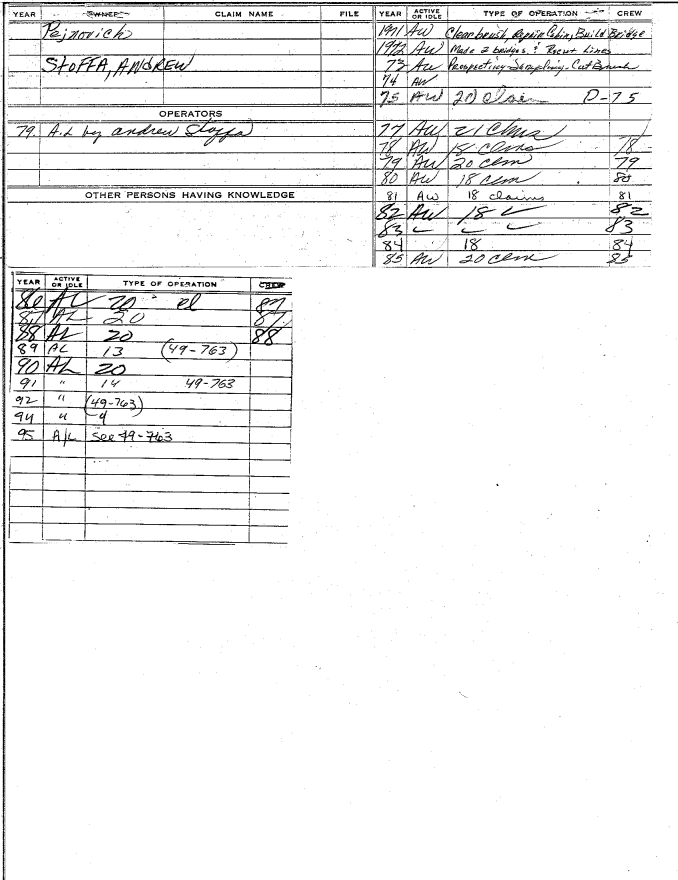 YEAR OWNER CLAIM NAME FILE
Pejnovich
STOFFA, ANDREW
OPERATORS
79. A.L by Andrew Stoffa
OTHER PERSONS HAVING KNOWLEDGE
YEAR ACTIVE OR IDLE TYPE OF OPERATION CREW
1971 AW Clear brush, Repair Cabin, Build Bridge
1972 AW Made 2 bridges & Recut Lines
73 AW Prospecting-Sampling-Cut Brush
74 AW
75 AW 20 Claim D-75
77 AW 21 Clms
78 AW 18 clms 78
79 AW 20 clm 79
80 AW 18 clm 80
81 AW 18 claims 81
82 AW 18 82
83 83
84 18 84
85 AW 20 clm 85
YEAR ACTIVE OR IDLE TYPE OF OPERATION CREW
86 AL 20 cl 87
87 AL 20 87.
88 AL 20 88
89 AL 13 (49-763)
90 AL 20
91 " 14 49-763
92 " (49-763)
94 " 9
95 A/L See 49-763